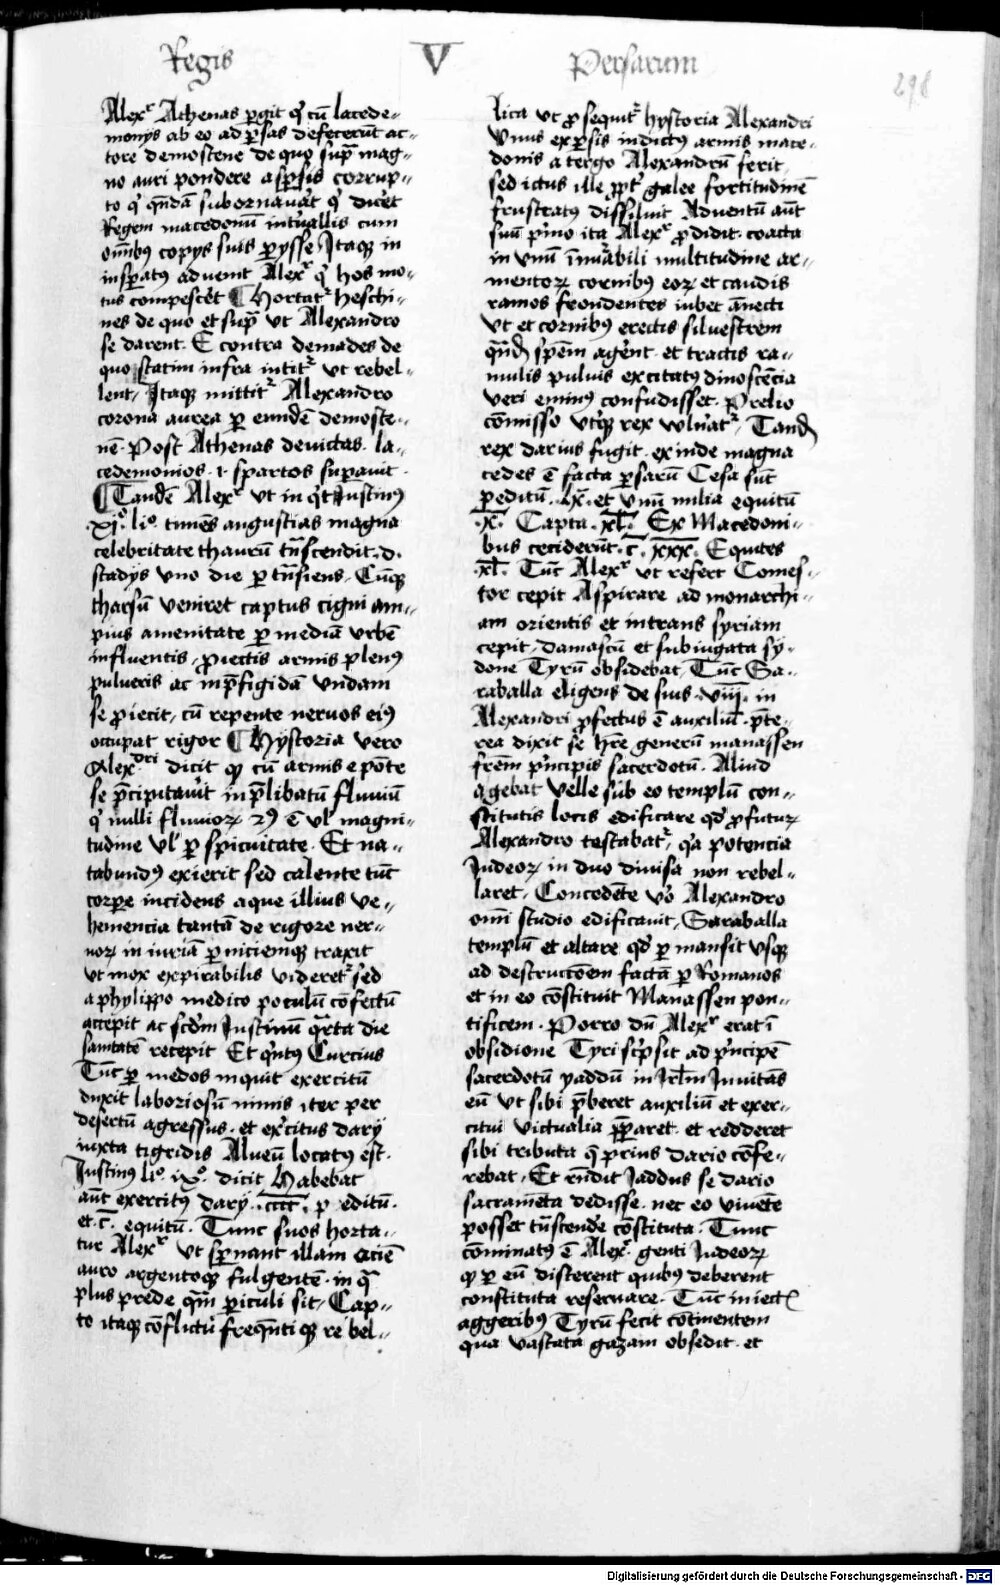 Regis V Persarum
298
Alexʳ Athenas ꝑgit qͥ cū lacede-
monijs ab eo ad ꝑsas defecerūt ac-
tore demostene de quo supᵃ mag-
no auri pondere a ꝑsis corrup-
to qͥ qͣndā subornauͣt qͥ dicͤet
Regem macedonū intͥuallis cum
omībꝰ copijs suis ꝑysse Itaqꝫ in
insꝑatꝰ aduenit Alexʳ qͥ hos mo-
tus compescͤet ¶ Hortatʳ heschi-
nes de quo et supᵃ vt Alexandro
se darent. E contra demades de
quo statim infra intitʳ vt rebel-
lent, Itaqꝫ mittitʳ Alexandro
corona aurea ꝑ eundē demoste-
nē. Post Athenas deuictas. la-
cedemonios. ⁊ spartos suꝑauit.
¶ Tandē Alexʳ vt in qͥt Iustinꝰ
.xjº. liº. timēs angustias magna
celebritate thaurū tͣnscendit. d.
stadijs vno die ꝑ tͣnsiens, Cūqꝫ
tharsū veniret captus cigni am-
pius amenitate ꝑ mediā vrbē
influentis, ꝓiectis armis plenꝰ
pulueris ac in p̄figidā vndam
se ꝓiecit, cū repente neruos eiꝰ
occupat rigor ¶ Hystoria vero
Alexᵈʳⁱ dicit ꝙ cū armis e pōte
se p̄cipitauit in p̄libatū fluuiū
qͥ nulli fluuioꝝ 2ꝰ ē vl' magni-
tudine vl' ꝑspicuitate. Et na-
tabundꝰ exierit sed calente tūc
corpe incidens aque illius ve-
hemencia tantā de rigore ner-
uoꝝ in iuriā ꝑniciemqꝫ traxit
vt mox expirabilis videretʳ sed
a phylippo medico poculū cōfectū
accepit ac scdͫm Iustinū qͣrta die
sanitatē recepit Et qͥntꝰ Curcius
Tūc ꝑ medos inquit exercitū
duxit laboriosū nimis iter per
desertū agressus. et exͤcitus darij
iuxta tigridis Alueū locatꝰ est.
Iustinꝰ liº. ixº. dicit Habebat
aūt exercitꝰ darij .cccc̄. peditū.
et .c̄. equitū. Tunc suos horta-
tur Alexʳ vt sꝑnant illam aciē
auro argentoqꝫ fulgentē. in qͣ
plus prede qͣm ꝑiculi sit, Cap-
to itaqꝫ cōflictū freqͣnti qꝫ rebel-
lica vt ꝓsequitʳ hystoria Alexandri
Vnus ex ꝑsis indictꝰ armis mace-
donis a tergo Alexandrū ferit,
sed ictus ille ꝓpͭ galee fortitudinē
frustratꝰ dissiluit Aduentū aūt
suū pͥmo ita Alexʳ ꝓdidit. coacta
in vnū īnuͣabili multitudine ar-
mentoꝝ cornibꝰ eoꝝ et caudis
ramos frondentes iubet ānecti
vt et cornibꝰ erectis siluestrem
qͣndꝫ spēm agͤent. et tractis ra-
mulis puluis excitatꝰ dinoscēcia
veri eminꝰ confudisset. Prelio
cōmisso vtͤqꝫ rex vlnͤatʳ, Tandꝫ
rex darius fugit. exinde magna
cedes ē facta ꝑsarū Cesa sūt
peditū .lx̄. et vnū milia equitū
.x̄. Capta .xl̄. Ex Macedoni-
bus ceciderūt .c̄. xxx. Equites
.xl̄. Tūc Alexʳ vt refert Comes-
tor cepit Aspirare ad monarchi-
am orientis et intrans syriam
cepit, damascū et subiugata sy-
done Tyrū obsidebat, Tūc Sa-
raballa eligens de suis .viij̄. in
Alexandri ꝓfectus ē auxiliū. p̄te-
rea dixit se hr̄e generū manassen
frēm pͥncipis sacerdotū. Aliud
agebat velle sub eo templū con-
stitutis locis edificare qd' ꝓfuturꝝ
Alexandro testabatʳ, qͥa potencia
Iudeoꝝ in duo diuisa non rebel-
laret, Concedēte vͦo Alexandro
omī studio edificauit, Saraballa
templū et altare qd' ꝑ mansit vsqꝫ
ad destruccōem factā ꝑ Romanos
et in eo cōstituit Manassen pon-
tificem. Porro dū Alexʳ erat ī
obsidione Tyri scͥpsit ad pͥncipē
sacerdotū yaddū in Irl̄m Inuitās
eū vt sibi p̄beret auxiliū et exer-
citui victualia p̄ꝑaret. et redderet
sibi tributa q̄ prius dario cōfe-
rebat, Et rn̄dit Iaddus se dario
sacramēta dedisse. nec eo viuēte
posset tͣnscendͤe cōstituta. Tunc
cōminatꝰ ē Alexʳ. genti Iudeoꝝ
ꝙ ꝑ eū discerent quibꝰ deberent
constituta reseruare. Tūc iniectꝭ
aggeribus Tyrū fecit cōtinentem
qua vastata gazam obsedit. et
Digitalisierung gefördert durch die Deutsche Forschungsgemeinschaft - DFG